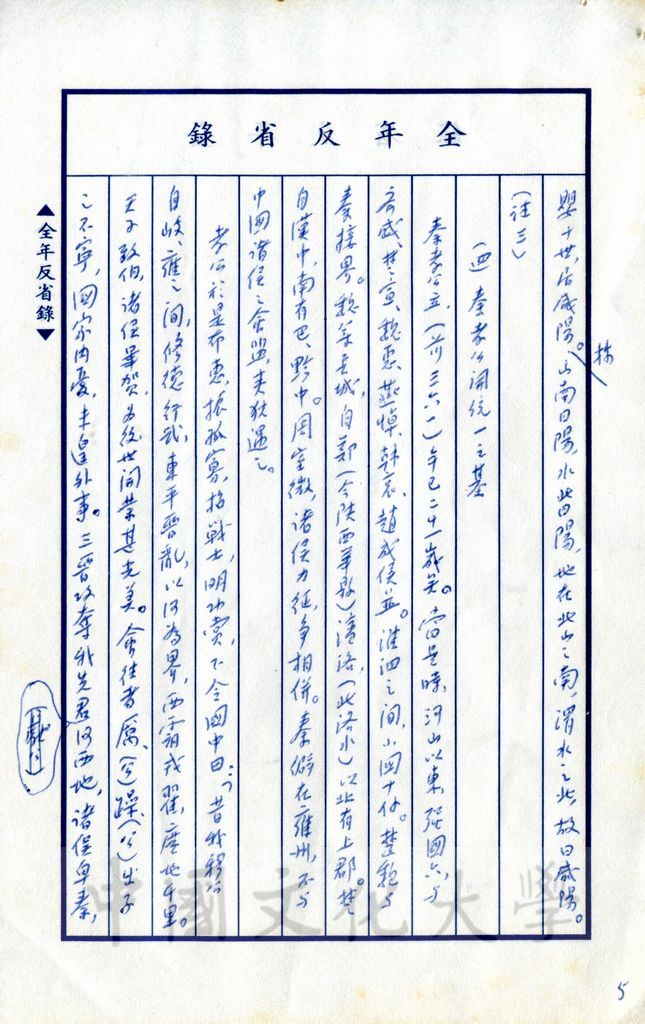 全年反省錄
嬰十世,居咸陽。山南曰陽,水北曰陽,地在北山之南,渭水之北,故曰咸陽。
按
(註三)
(四)秦孝公開統一之基
秦孝公立,(前三六一)年已二十一歲矣。當是時,河山以東,強國六,與
齊威、楚宣、魏惠、燕悼、韓哀、趙成侯並。淮泗之間,小國十餘。楚魏與
秦接界。魏築長城,自鄭(今陝西華縣)濱洛,(此洛水)以北有上郡。楚
自漢中,南有巴、黔中。周室微,諸侯力征,爭相併。秦僻在雍州,不與
中國諸侯之會盟,夷狄遇之。
孝公於是布惠,振孤寡,招戰士,明功賞,下令國中曰:「昔我穆公
自岐、雍之間,修德行武,東平晉亂,以河為界,西霸戎翟,廣地千里。
天子致伯,諸侯畢賀,為後世開業甚光美。會往者厲、(公)躁、(公)出子
之不寧,國家內憂,未遑外事。三晉攻奪我先君河西地,諸侯卑秦,
(獻公)
▲全年反省錄▼
中國文化大學
5